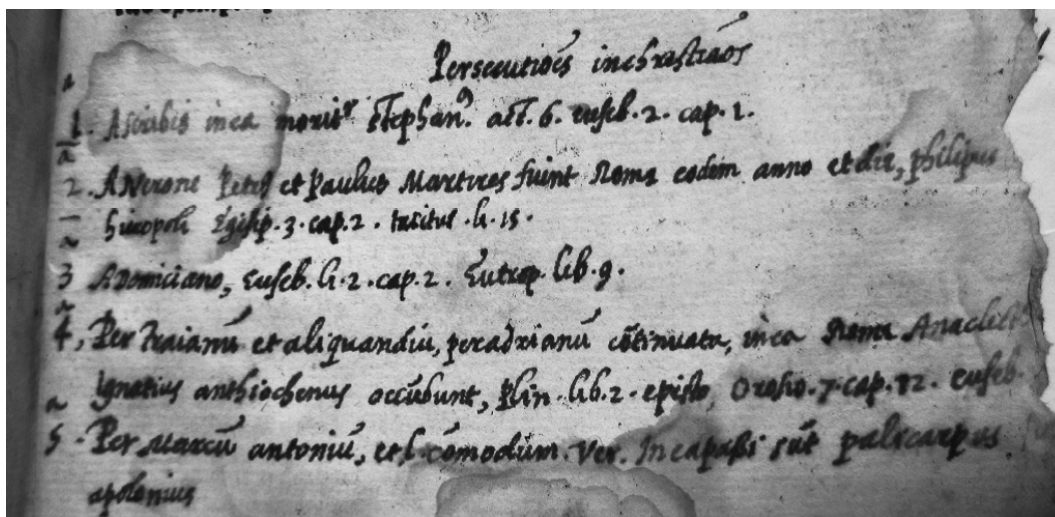 Persecutiões inchristiaõs
1ª. Ascribis in ea morit^r Stephan⁹. act. 6. euseb. 2. cap. 1.
2ª. ANerone Petr⁹ et Paulus Martires fuint Roma eodem anno et die, philipus
hieropoli Egisip. 3. cap. 2. tacitus. li. 15.
3ª ADomiciano, euseb. li. 2. cap. 2. Eutrop. lib. 9.
4ª, Per traianũ et aliquandiu, peradrianũ cõtinuata, in ea Roma Anaclet
ignatius anthiochenus occũbunt, plin. lib. 2. episto, Orosio. 7. cap. 12. euseb.
5ª. Per Marcũ antoniũ, et l. cõmodum. Ver. In ea passi sũt palicarpus
apolonius